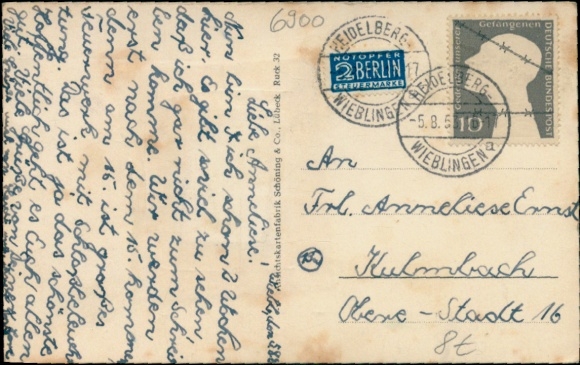 Liebe Anneliese!
Nun bin ich schon 2 Wochen
hier. Es gibt soviel zu sehen
daß ich gar nicht zum Schrei
ben komme. Wir werden
erst nach dem 15. kommen,
denn am 15. ist großes
Feuerwerk mit Schloßbeleuch
tung. Das ist ja das schönste.
Hoffentlich geht es Euch allen
gut. Viele Grüße von
Ansichtskartenfabrik Schöning & Co., Lübeck Ruck 32
6900
HEIDELBERG-
WIEBLINGEN
NOTOPFER
2 BERLIN
STEUERMARKE
HEIDELBERG-
-5.8.5
WIEBLINGEN
a
Gefangenen
DEUTSCHE BUNDESPOST
10
An
Frl. Anneliese Ernst
Kulmbach
Obere-Stadt 16
8t